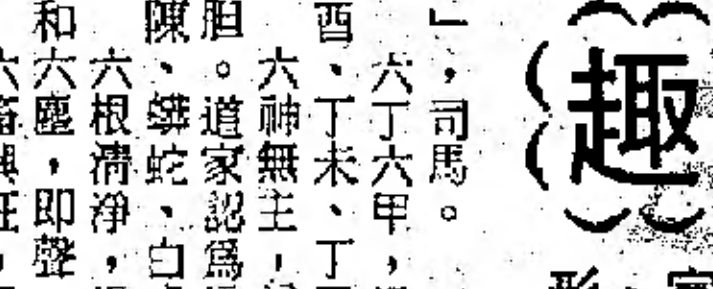 趣
」，司馬。
六丁六甲，
酉、丁未、丁
六神無主，
胆。道家認爲
陳、螣蛇、白
六根清净，
和六塵，即聲
六畜興旺，